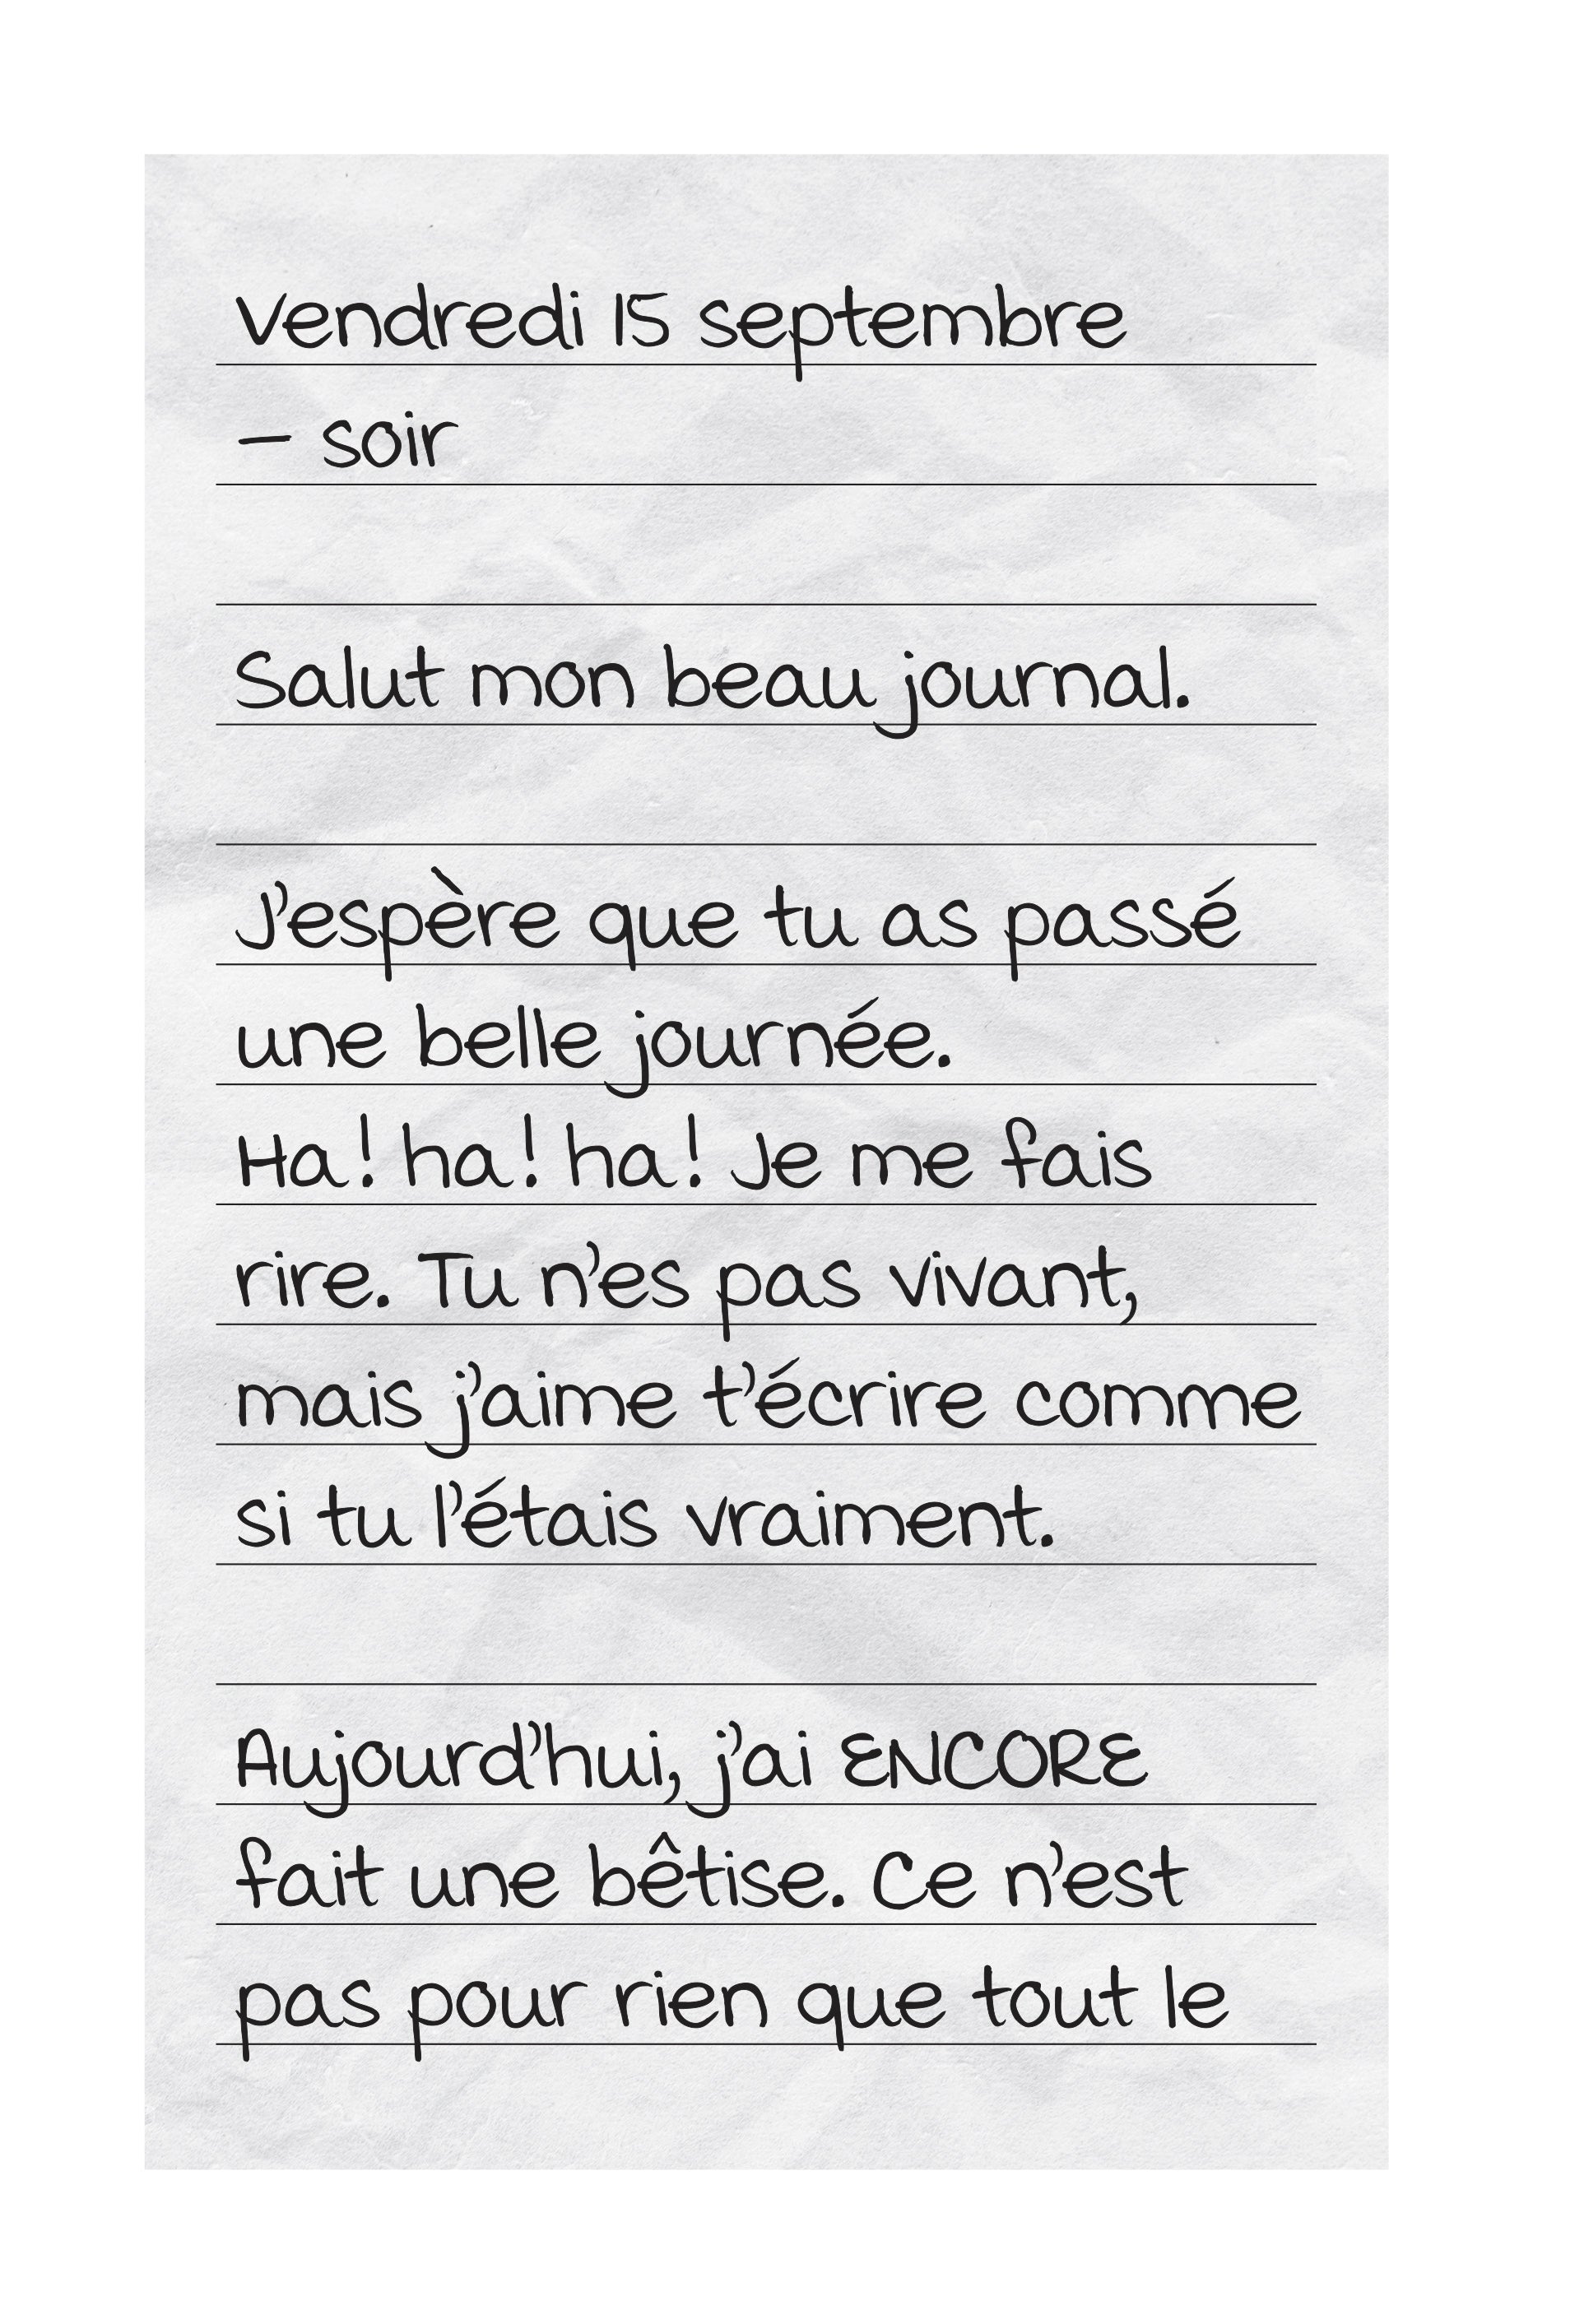 Vendredi 15 septembre
– soir
Salut mon beau journal.
J’espère que tu as passé
une belle journée.
Ha ! ha ! ha ! Je me fais
rire. Tu n’es pas vivant,
mais j’aime t’écrire comme
si tu l’étais vraiment.
Aujourd’hui, j’ai ENCORE
fait une bêtise. Ce n’est
pas pour rien que tout le